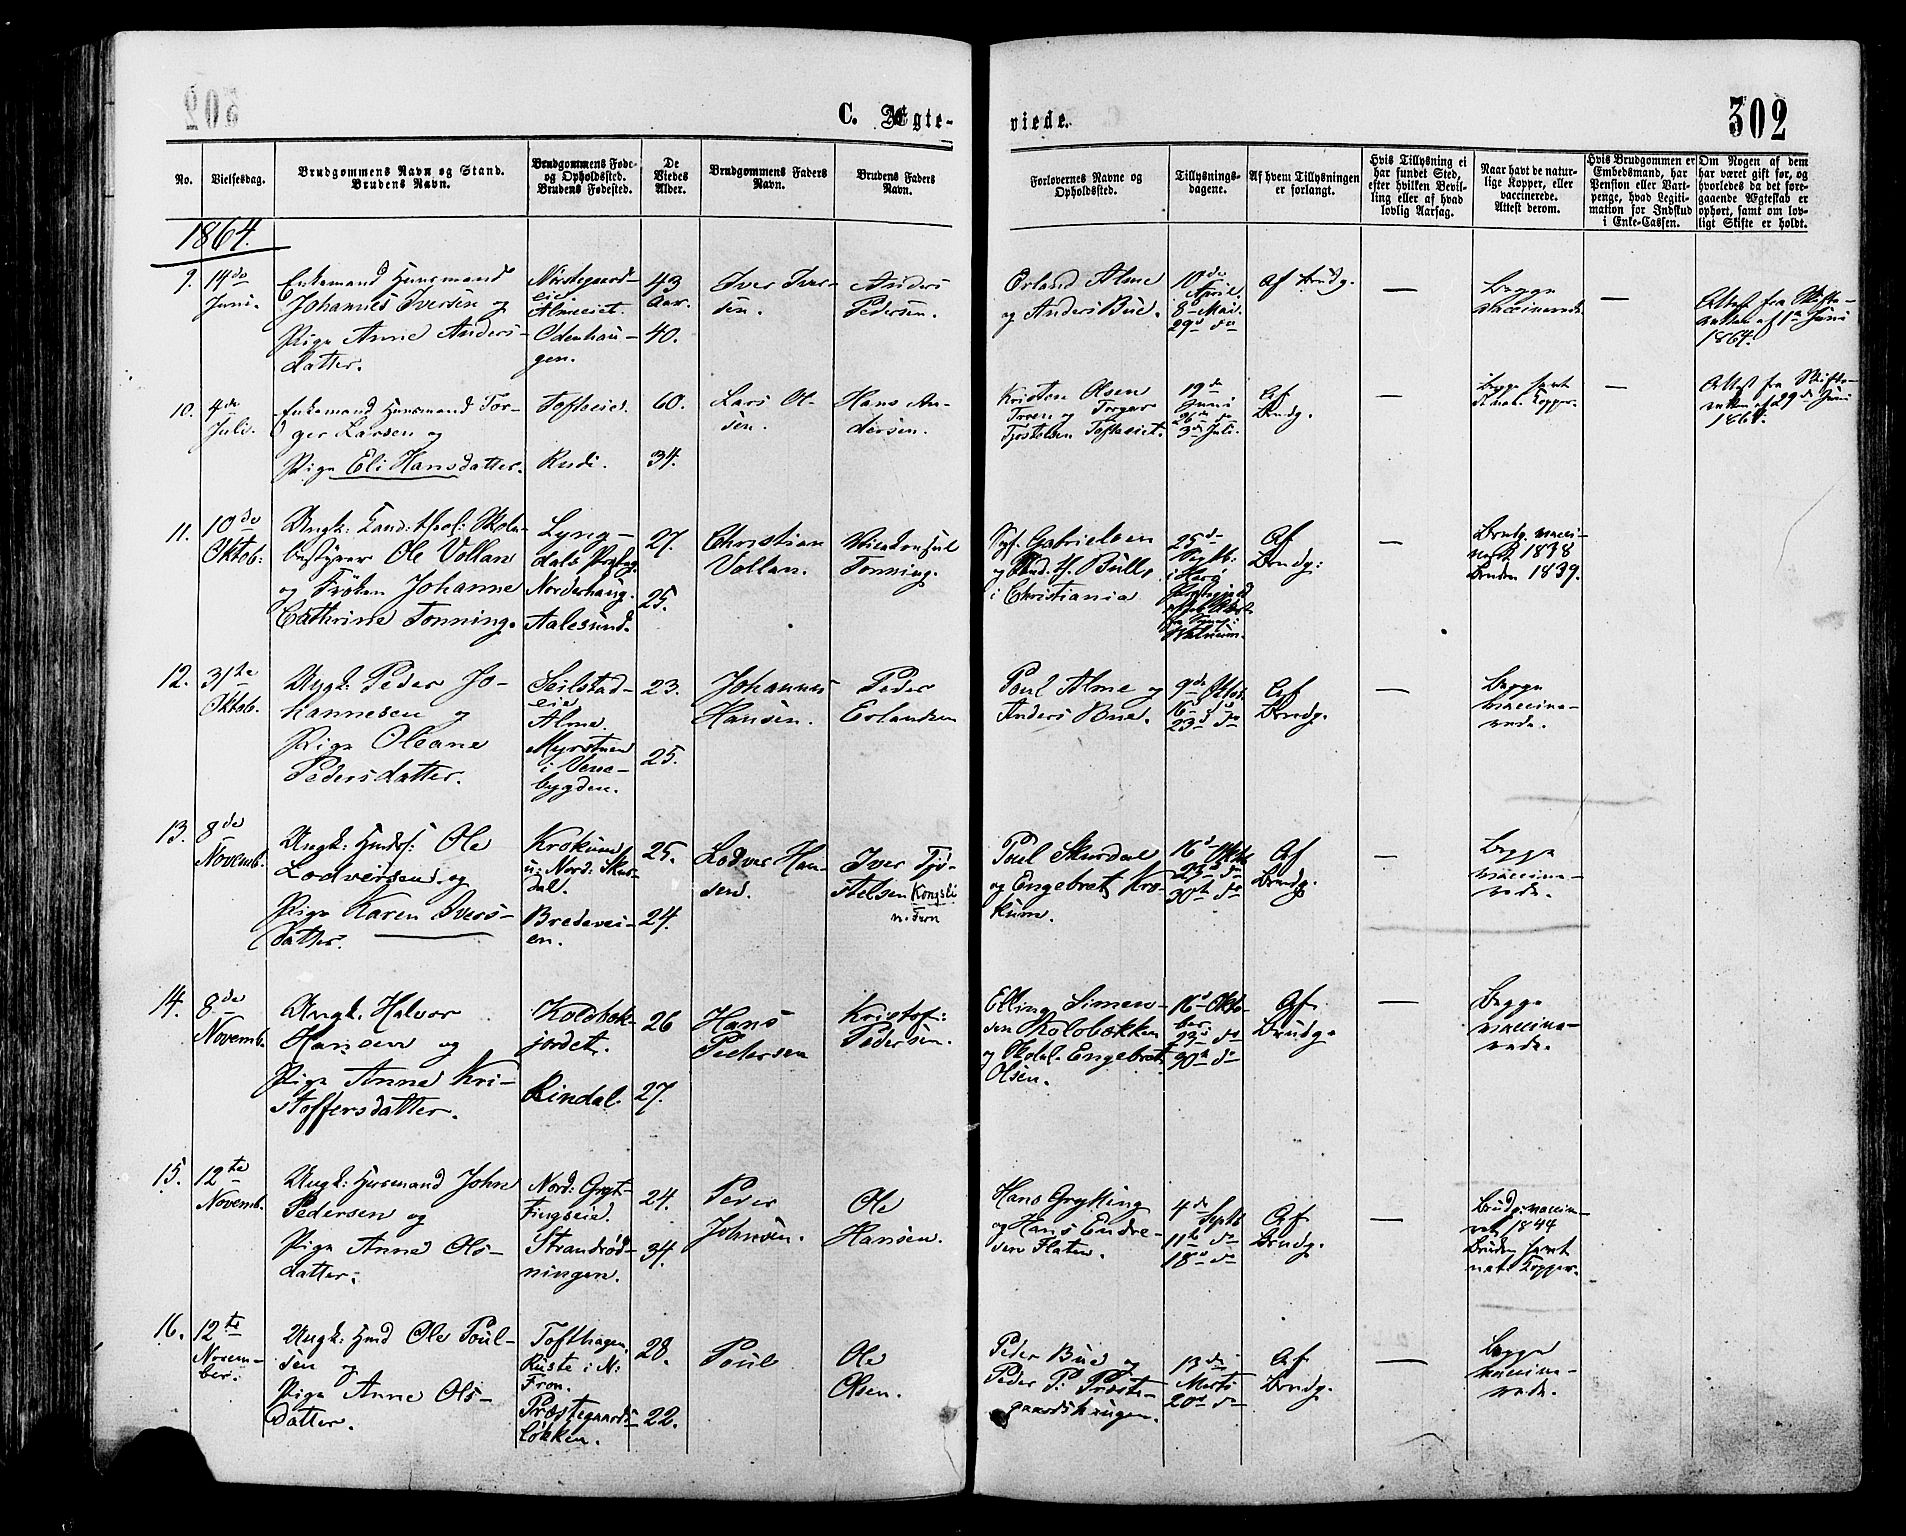 302
C. Ægte-
viede.
302
No.
Vielsesdag.
Brudgommens Navn og Stand.
Brudens Navn.
Brudgommens Føde-
og Opholdssted.
Brudens Fødested.
De
Viedes
Alder.
Brudgommens Faders
Navn.
Brudens Faders
Navn.
Forlovernes Navne og
Opholdssted.
Tillysnings-
dagene.
Af hvem Tillysningen
er forlangt.
Hvis Tillysning ei
har fundet Sted,
efter hvilken Bevil-
ling eller af hvad
lovlig Aarsag.
Naar havt de natur-
lige Kopper, eller
vaccinerede.
Attest derom.
Hvis Brudgommen er
Embedsmand, har
Pension eller Vart-
penge, hvad Legiti-
mation for Indskud
i Enke-Cassen.
Om Nogen af dem
har været gift før, og
hvorledes da det fore-
gaaende Ægteskab er
ophørt, samt om lov-
ligt Skifte er holdt.
1864.
9.
14de
Juni.
Enkemand Huusmand
Johannes Iversen og
Pige Anne Anders-
datter.
Nordegaards-
eie.
Almeeiet.
Odenhau-
gen.
43
Aar.
40.
Iver Iver-
sen.
Anders
Pedersen.
Erland Alme
og Anders Bue.
10de
April.
8de Mai.
29de do
Af Brudg.
—
Begge
vaccinerede.
—
Attest fra Skifte-
retten af 1ste Juni
1864.
10.
4de
Juli.
Enkemand Huusmand Tor-
ger Larsen og
Pige Eli Hansdatter.
Tofteeie.
Rudi.
60.
34.
Lars Ol-
sen.
Hans An-
dersen.
Kristen Olsen
Troen og Torger
Tjostelsen Tofteeiet.
19de
Juni
26de do
3de Juli.
Af
Brudg.
—
Begge havt
de nat. Kopper.
—
Attest fra Skifte-
retten af 29de Juni
1864.
11.
10de
Oktob:
Ungk: Cand: theol: Skole-
bestyrer Ole Vollan
og Frøken Johanne
Cathrine Tonning.
Lyng-
dals Præstegj.
Norderhaug.
Aalesund.
27.
25.
Christian
Vollan.
Vicekonsul
Tonning.
Gabrielsen
og Cand. th. Bull,
i Christiania
25de
Septb:
Af
Brudg:
—
Brudg. vacci-
neret 1838
Bruden 1839.
12.
31te
Oktob.
Ungk: Peder Jo-
hannesen og
Pige Oleane
Pedersdatter.
Seilstad-
eie
Alme
Myrstuen
i Vene-
bygden.
23.
25.
Johannes
Hansen.
Peder
Erlandsen
Poul Alme og
Anders Bue.
9de Oktob.
16de do
23de do
Af
Brudg.
—
Begge
vaccine-
rede.
13.
8de
Novemb.
Ungk: Huusf: Ole
Lodversen og
Pige Karen Ivers-
datter.
Krokum
u. Nord: Skur-
dal.
Bredevei-
en.
25.
24.
Lodver Han-
sen.
Iver Tjø-
stelsen Kongsli
n. Fron
Poul Skurdal
og Engebret Kro-
kum.
16de Oktob
23de do
30te do
Af
Brudg.
—
Begge
vaccine-
rede.
14.
8de
Novemb.
Ungk. Halvor
Hansen og
Pige Anne Kri-
stoffersdatter.
Koldbæk-
jordet.
Rindal.
26
27.
Hans
Pedersen
Kristof:
Pedersen.
Elling Simen-
sen Kolobækken
og Skolel. Engebret
Olsen.
16de Okto-
ber
23de do
30te do
Af
Brudg.
—
Begge
vaccine-
rede.
15.
12te
Novemb.
Ungk: Huusmand John
Pedersen og
Pige Anne Ols-
datter.
Nord: Gryt-
tingseie.
Strandrød-
ningen.
24.
34.
Peder
Johnsen.
Ole
Hansen.
Hans Grytting
og Hans Endre-
sen Flaten.
4de
Septb
11te do
18de do
Af
Brudg.
—
Brudg. vaccine-
ret 1844
Bruden havt
nat. Kopper.
16.
12te
Novem-
ber.
Ungk: Huusmd Ole Poul-
sen og
Pige Anne Ols-
datter.
Tofthagen,
Ruste i N:
Fron.
Præstegaards-
løkken.
28.
22.
Poul
Ole
Olsen.
Peder Bue og
Peder P: Præste-
gaardshaugen.
13de
Marts
20de do
Af
Brudg.
—
Begge
vaccine-
rede.